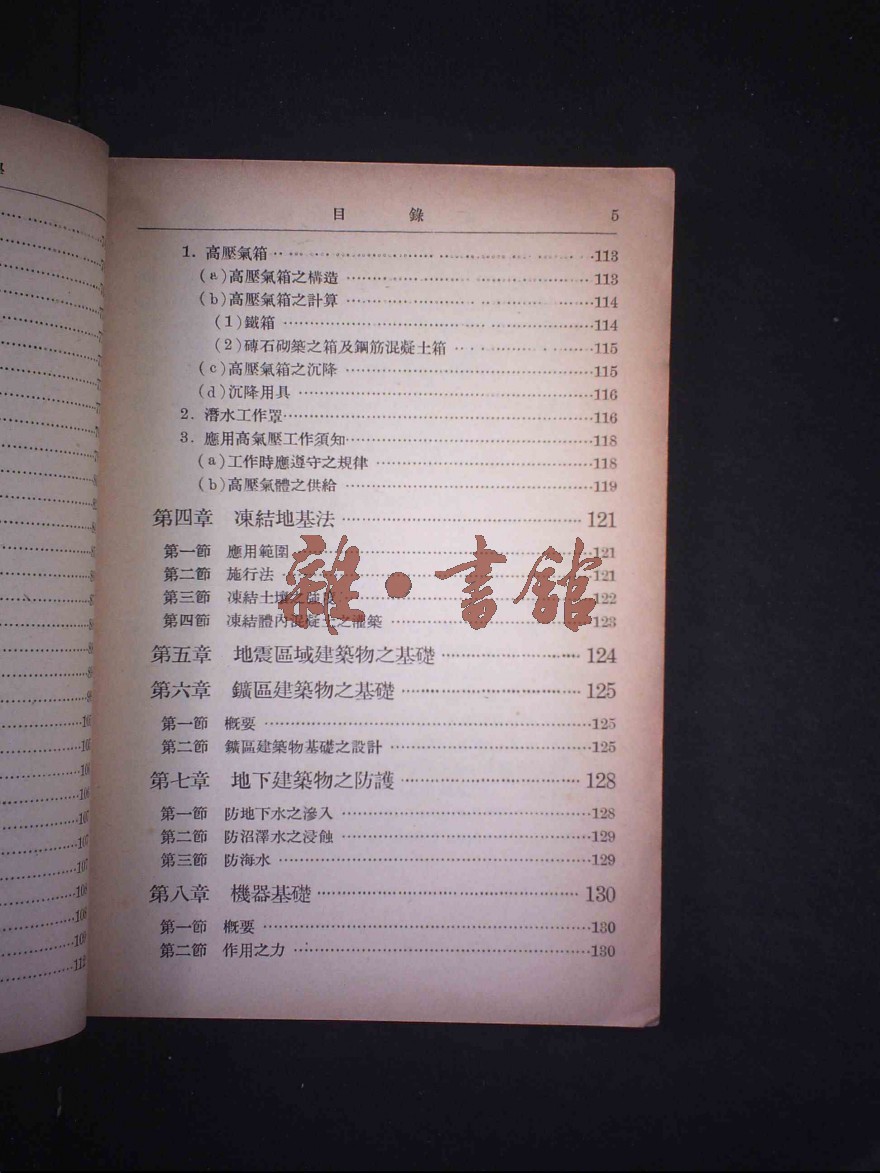 目 錄 5
1. 高壓氣箱 113
(a)高壓氣箱之構造 113
(b)高壓氣箱之計算 114
(1)鐵箱 114
(2)磚石砌築之箱及鋼筋混凝土箱 115
(c)高壓氣箱之沉降 115
(d)沉降用具 116
2. 潛水工作罩 116
3. 應用高氣壓工作須知 118
(a)工作時應遵守之規律 118
(b)高壓氣體之供給 119
第四章 凍結地基法 121
第一節 應用範圍 121
第二節 施行法 121
第三節 凍結土壤之強度 122
第四節 凍結體內混凝土之灌築 123
雜·書館
第五章 地震區域建築物之基礎 124
第六章 鑛區建築物之基礎 125
第一節 概要 125
第二節 鑛區建築物基礎之設計 125
第七章 地下建築物之防護 128
第一節 防地下水之滲入 128
第二節 防沼澤水之浸蝕 129
第三節 防海水 129
第八章 機器基礎 130
第一節 概要 130
第二節 作用之力 130